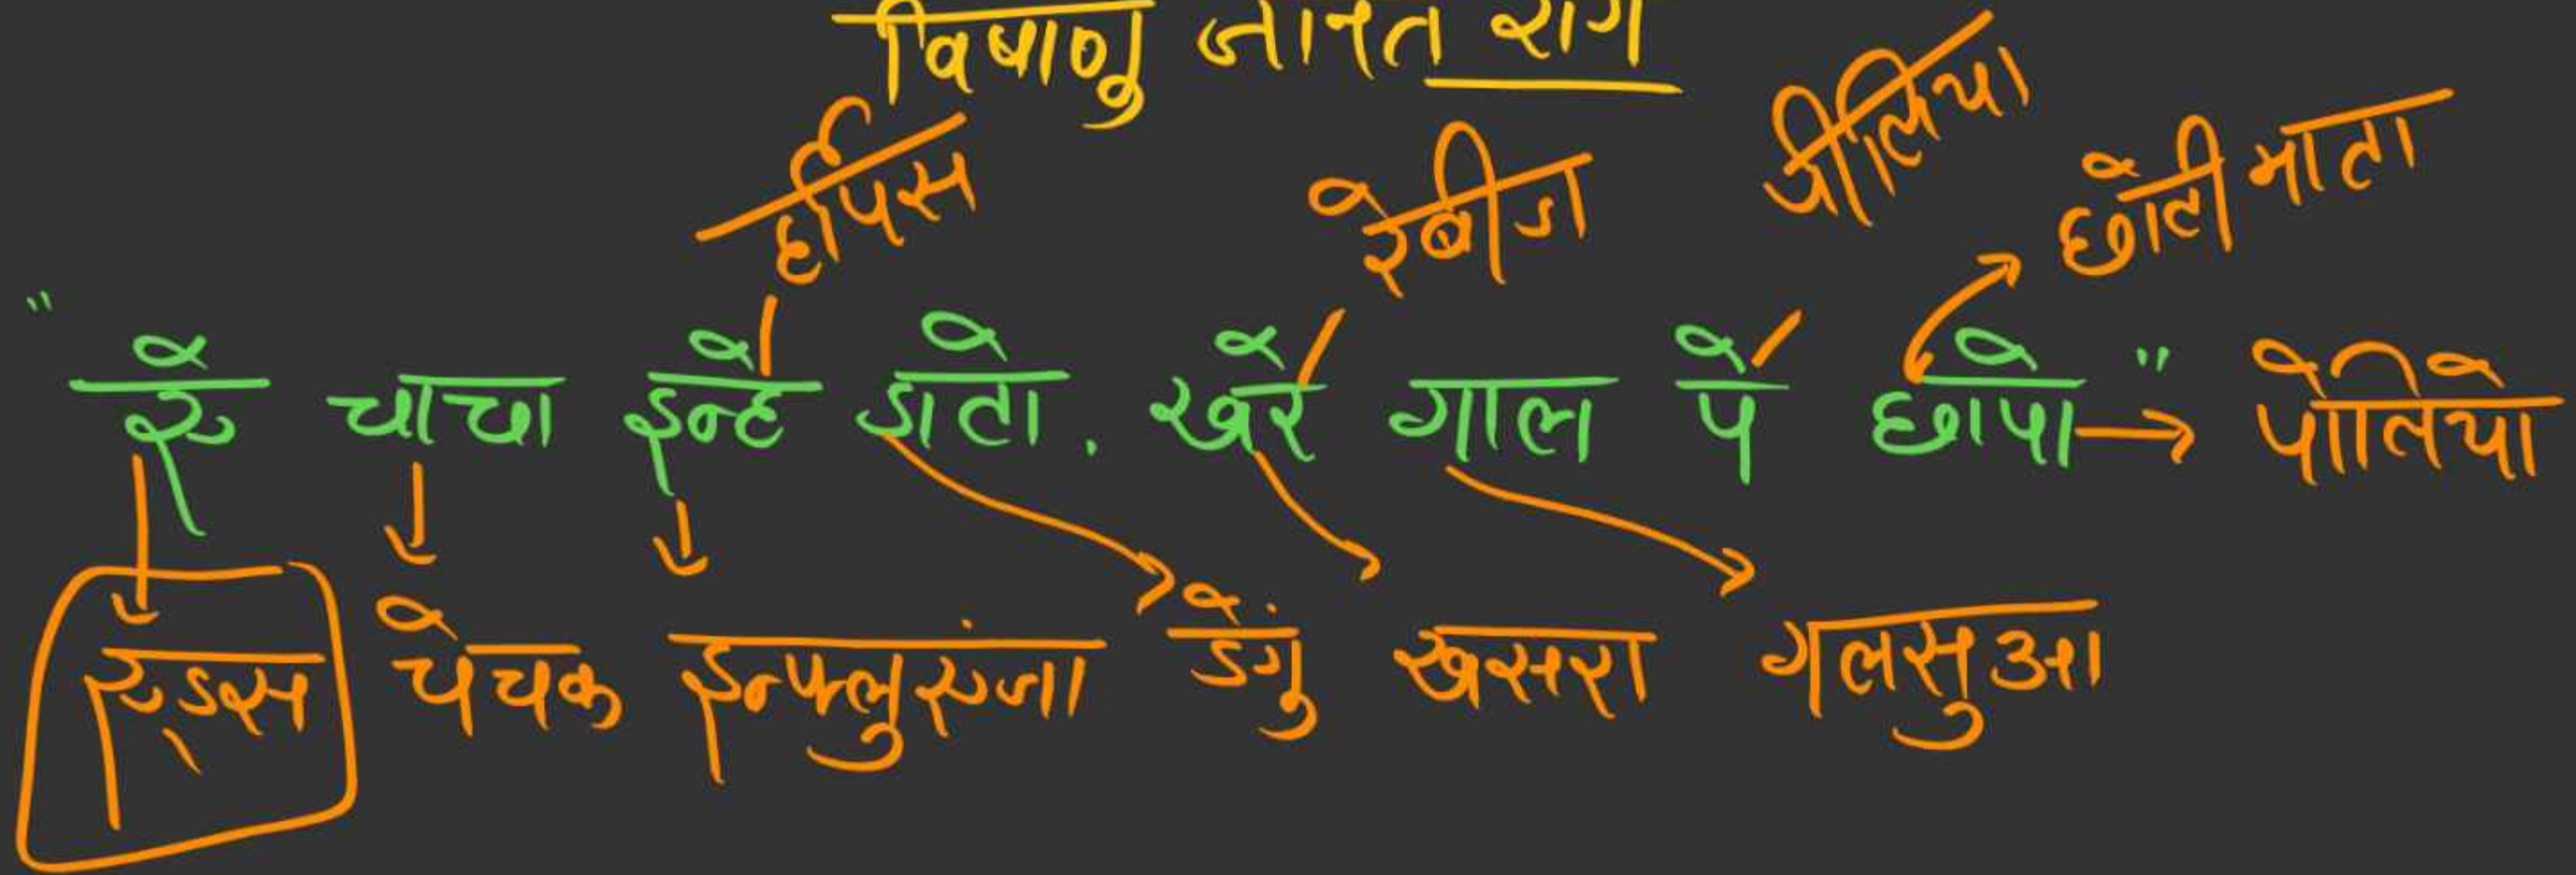 विषाणु जनित रोग
हर्पिस रेबीज पीलिया छोटी माता
"ऐ चाचा इन्हे डाटो. खेरे गाल पे छापो" → पोलियो
एड्स चेचक इन्फ्लुएंजा डेंगु खसरा गलसुआ